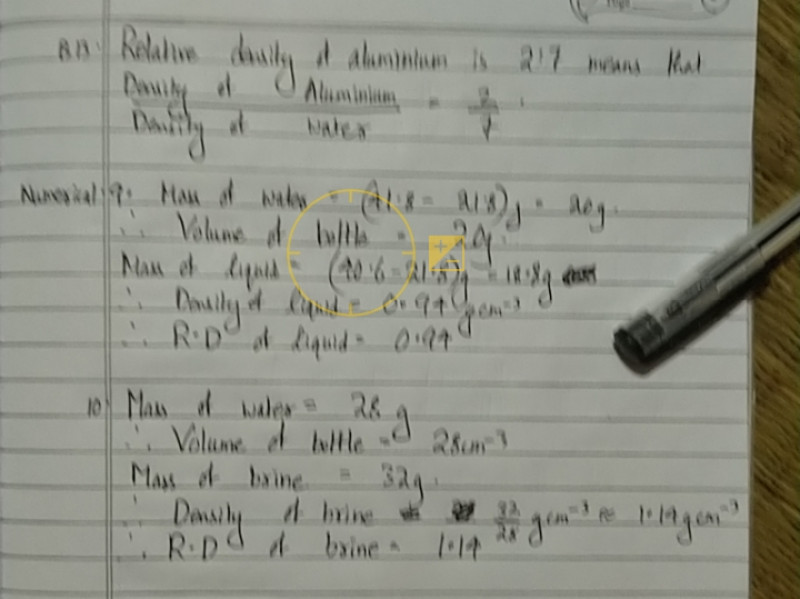 B.B. Relative density of aluminium is 2.7 means that
Density of Aluminium / Density of water = 2/7.
Numerical: 9. Mass of water = (41.8 - 21.8)g = 20g.
∴ Volume of bottle = 20g.
Mass of liquid = (40.6 - 21.8)g = 18.8g
∴ Density of liquid = 0.94 gcm⁻³
∴ R.D of liquid = 0.94
10. Mass of water = 28 g
∴ Volume of bottle = 28cm⁻³
Mass of brine = 32g.
∴ Density of brine 32/28 gcm⁻³ = 1.14gcm⁻³
∴ R.D of brine = 1.14